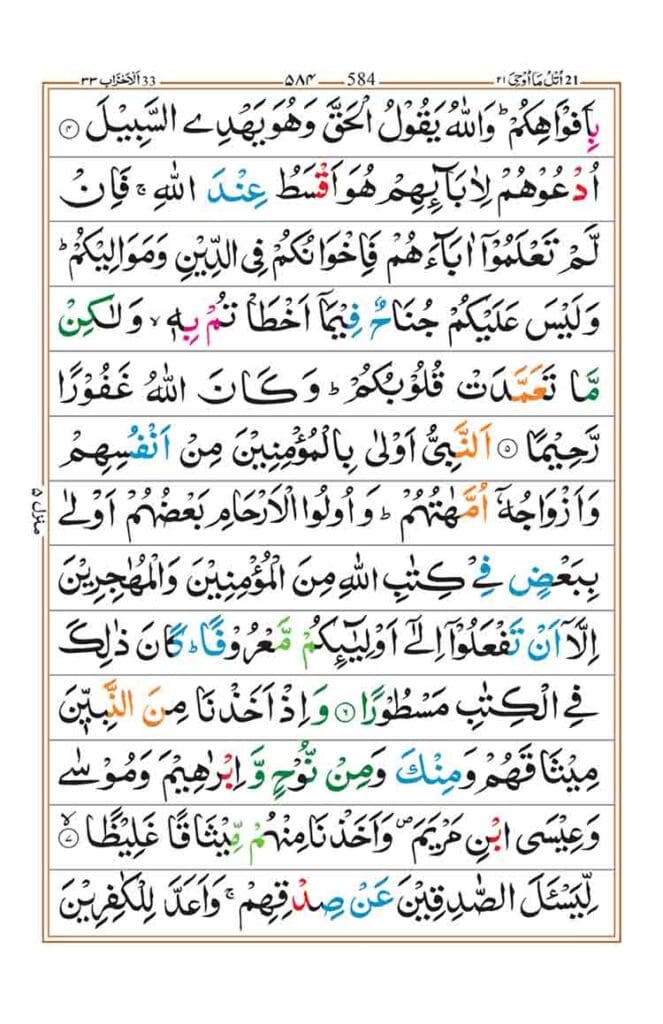 اُتْلُ مَاۤ اُوْحِیَ ۲۱ 21 584 ۵۸۴ اَلْاَحْزَاب ۳۳ 33
بِاَفْوَاهِكُمْ ؕ وَاللّٰهُ يَقُوْلُ الْحَقَّ وَهُوَ يَهْدِى السَّبِيْلَ ﴿۴﴾
اُدْعُوْهُمْ لِاٰبَآئِهِمْ هُوَ اَقْسَطُ عِنْدَ اللّٰهِ ۚ فَاِنْ
لَّمْ تَعْلَمُوْۤا اٰبَآءَهُمْ فَاِخْوَانُكُمْ فِى الدِّيْنِ وَمَوَالِيْكُمْ ؕ
وَلَيْسَ عَلَيْكُمْ جُنَاحٌ فِيْمَاۤ اَخْطَاْتُمْ بِهٖ ۙ وَلٰكِنْ
مَّا تَعَمَّدَتْ قُلُوْبُكُمْ ؕ وَكَانَ اللّٰهُ غَفُوْرًا
رَّحِيْمًا ﴿۵﴾ اَلنَّبِىُّ اَوْلٰى بِالْمُؤْمِنِيْنَ مِنْ اَنْفُسِهِمْ
وَاَزْوَاجُهٗۤ اُمَّهٰتُهُمْ ؕ وَاُولُوا الْاَرْحَامِ بَعْضُهُمْ اَوْلٰى
بِبَعْضٍ فِىْ كِتٰبِ اللّٰهِ مِنَ الْمُؤْمِنِيْنَ وَالْمُهٰجِرِيْنَ
اِلَّاۤ اَنْ تَفْعَلُوْۤا اِلٰٓى اَوْلِيٰٓئِكُمْ مَّعْرُوْفًا ؕ كَانَ ذٰلِكَ
فِى الْكِتٰبِ مَسْطُوْرًا ﴿۶﴾ وَاِذْ اَخَذْنَا مِنَ النَّبِيّٖنَ
مِيْثَاقَهُمْ وَمِنْكَ وَمِنْ نُّوْحٍ وَّاِبْرٰهِيْمَ وَمُوْسٰى
وَعِيْسَى ابْنِ مَرْيَمَ ۪ وَاَخَذْنَا مِنْهُمْ مِّيْثَاقًا غَلِيْظًا ﴿۷﴾ ۙ
لِّيَسْئَلَ الصّٰدِقِيْنَ عَنْ صِدْقِهِمْ ۚ وَاَعَدَّ لِلْكٰفِرِيْنَ
منزل ۵